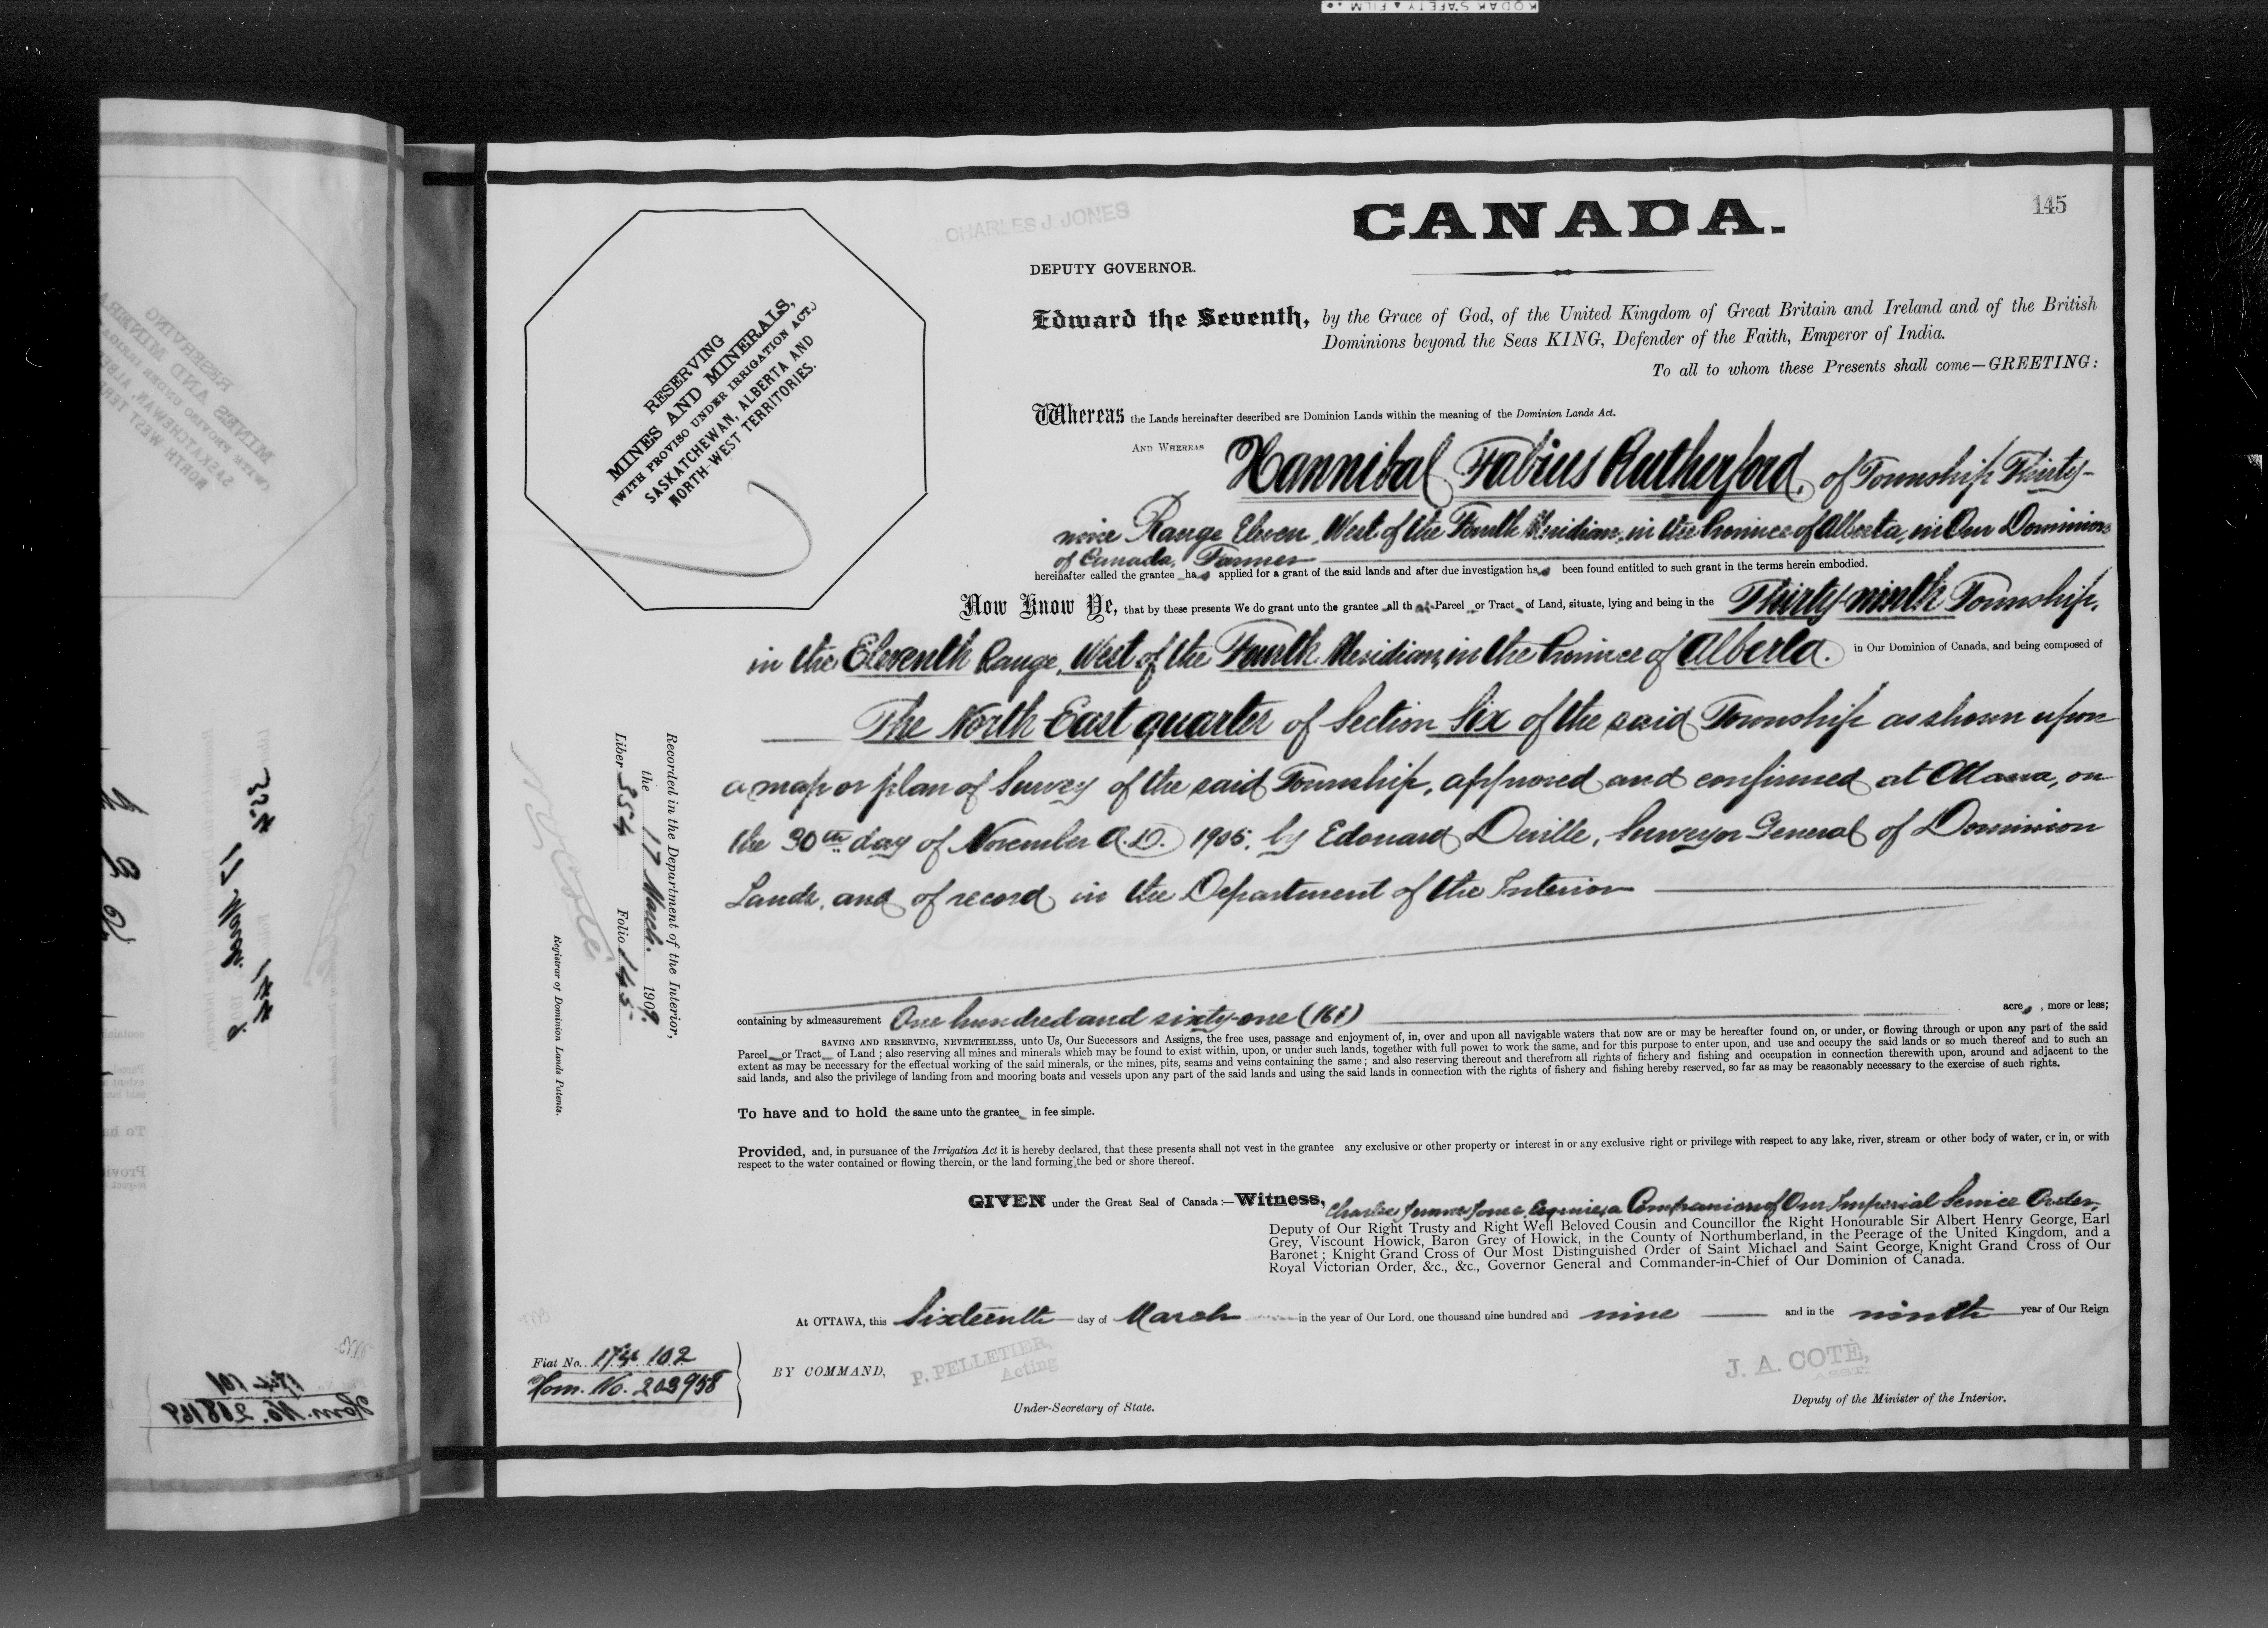 KODAK SAFETY ▲ FILM
145
CHARLES J. JONES
CANADA.
DEPUTY GOVERNOR.
RESERVING
MINES AND MINERALS,
(WITH PROVISO UNDER IRRIGATION ACT.)
SASKATCHEWAN, ALBERTA AND
NORTH-WEST TERRITORIES.
Edward the Seventh, by the Grace of God, of the United Kingdom of Great Britain and Ireland and of the British
Dominions beyond the Seas KING, Defender of the Faith, Emperor of India.
To all to whom these Presents shall come—GREETING:
Whereas the Lands hereinafter described are Dominion Lands within the meaning of the Dominion Lands Act.
AND WHEREAS Hannibal Fabius Rutherford, of Township Thirty-
nine Range Eleven, West of the Fourth Meridian, in the Province of Alberta, in Our Dominion
of Canada, Farmer
hereinafter called the grantee has applied for a grant of the said lands and after due investigation has been found entitled to such grant in the terms herein embodied.
Now Know Ye, that by these presents We do grant unto the grantee all that Parcel or Tract of Land, situate, lying and being in the Thirty-ninth Township,
in the Eleventh Range, West of the Fourth Meridian, in the Province of Alberta. in Our Dominion of Canada, and being composed of
The North East quarter of Section Six of the said Township as shown upon
a map or plan of Survey of the said Township, approved and confirmed at Ottawa, on
the 30th day of November A.D. 1905, by Edouard Deville, Surveyor General of Dominion
Lands, and of record in the Department of the Interior
containing by admeasurement One hundred and sixty-one (161) acres, more or less;
SAVING AND RESERVING, NEVERTHELESS, unto Us, Our Successors and Assigns, the free uses, passage and enjoyment of, in, over and upon all navigable waters that now are or may be hereafter found on, or under, or flowing through or upon any part of the said
Parcel or Tract of Land; also reserving all mines and minerals which may be found to exist within, upon, or under such lands, together with full power to work the same, and for this purpose to enter upon, and use and occupy the said lands or so much thereof and to such an
extent as may be necessary for the effectual working of the said minerals, or the mines, pits, seams and veins containing the same; and also reserving thereout and therefrom all rights of fichery and fishing and occupation in connection therewith upon, around and adjacent to the
said lands, and also the privilege of landing from and mooring boats and vessels upon any part of the said lands and using the said lands in connection with the rights of fishery and fishing hereby reserved, so far as may be reasonably necessary to the exercise of such rights.
To have and to hold the same unto the grantee in fee simple.
Provided, and, in pursuance of the Irrigation Act it is hereby declared, that these presents shall not vest in the grantee any exclusive or other property or interest in or any exclusive right or privilege with respect to any lake, river, stream or other body of water, or in, or with
respect to the water contained or flowing therein, or the land forming the bed or shore thereof.
GIVEN under the Great Seal of Canada:—Witness, Charles Jones Esquire, a Companion of Our Imperial Service Order,
Deputy of Our Right Trusty and Right Well Beloved Cousin and Councillor the Right Honourable Sir Albert Henry George, Earl
Grey, Viscount Howick, Baron Grey of Howick, in the County of Northumberland, in the Peerage of the United Kingdom, and a
Baronet; Knight Grand Cross of Our Most Distinguished Order of Saint Michael and Saint George, Knight Grand Cross of Our
Royal Victorian Order, &c., &c., Governor General and Commander-in-Chief of Our Dominion of Canada.
At OTTAWA, this Sixteenth day of March in the year of Our Lord, one thousand nine hundred and nine and in the ninth year of Our Reign
Fiat No. 174 102
Hom. No. 203958
BY COMMAND,
P. PELLETIER,
Acting
Under-Secretary of State.
J. A. COTÉ,
ASST.
Deputy of the Minister of the Interior.
Recorded in the Department of the Interior,
the 17 March. 1909.
Liber 354 Folio 145
Registrar of Dominion Lands Patents.